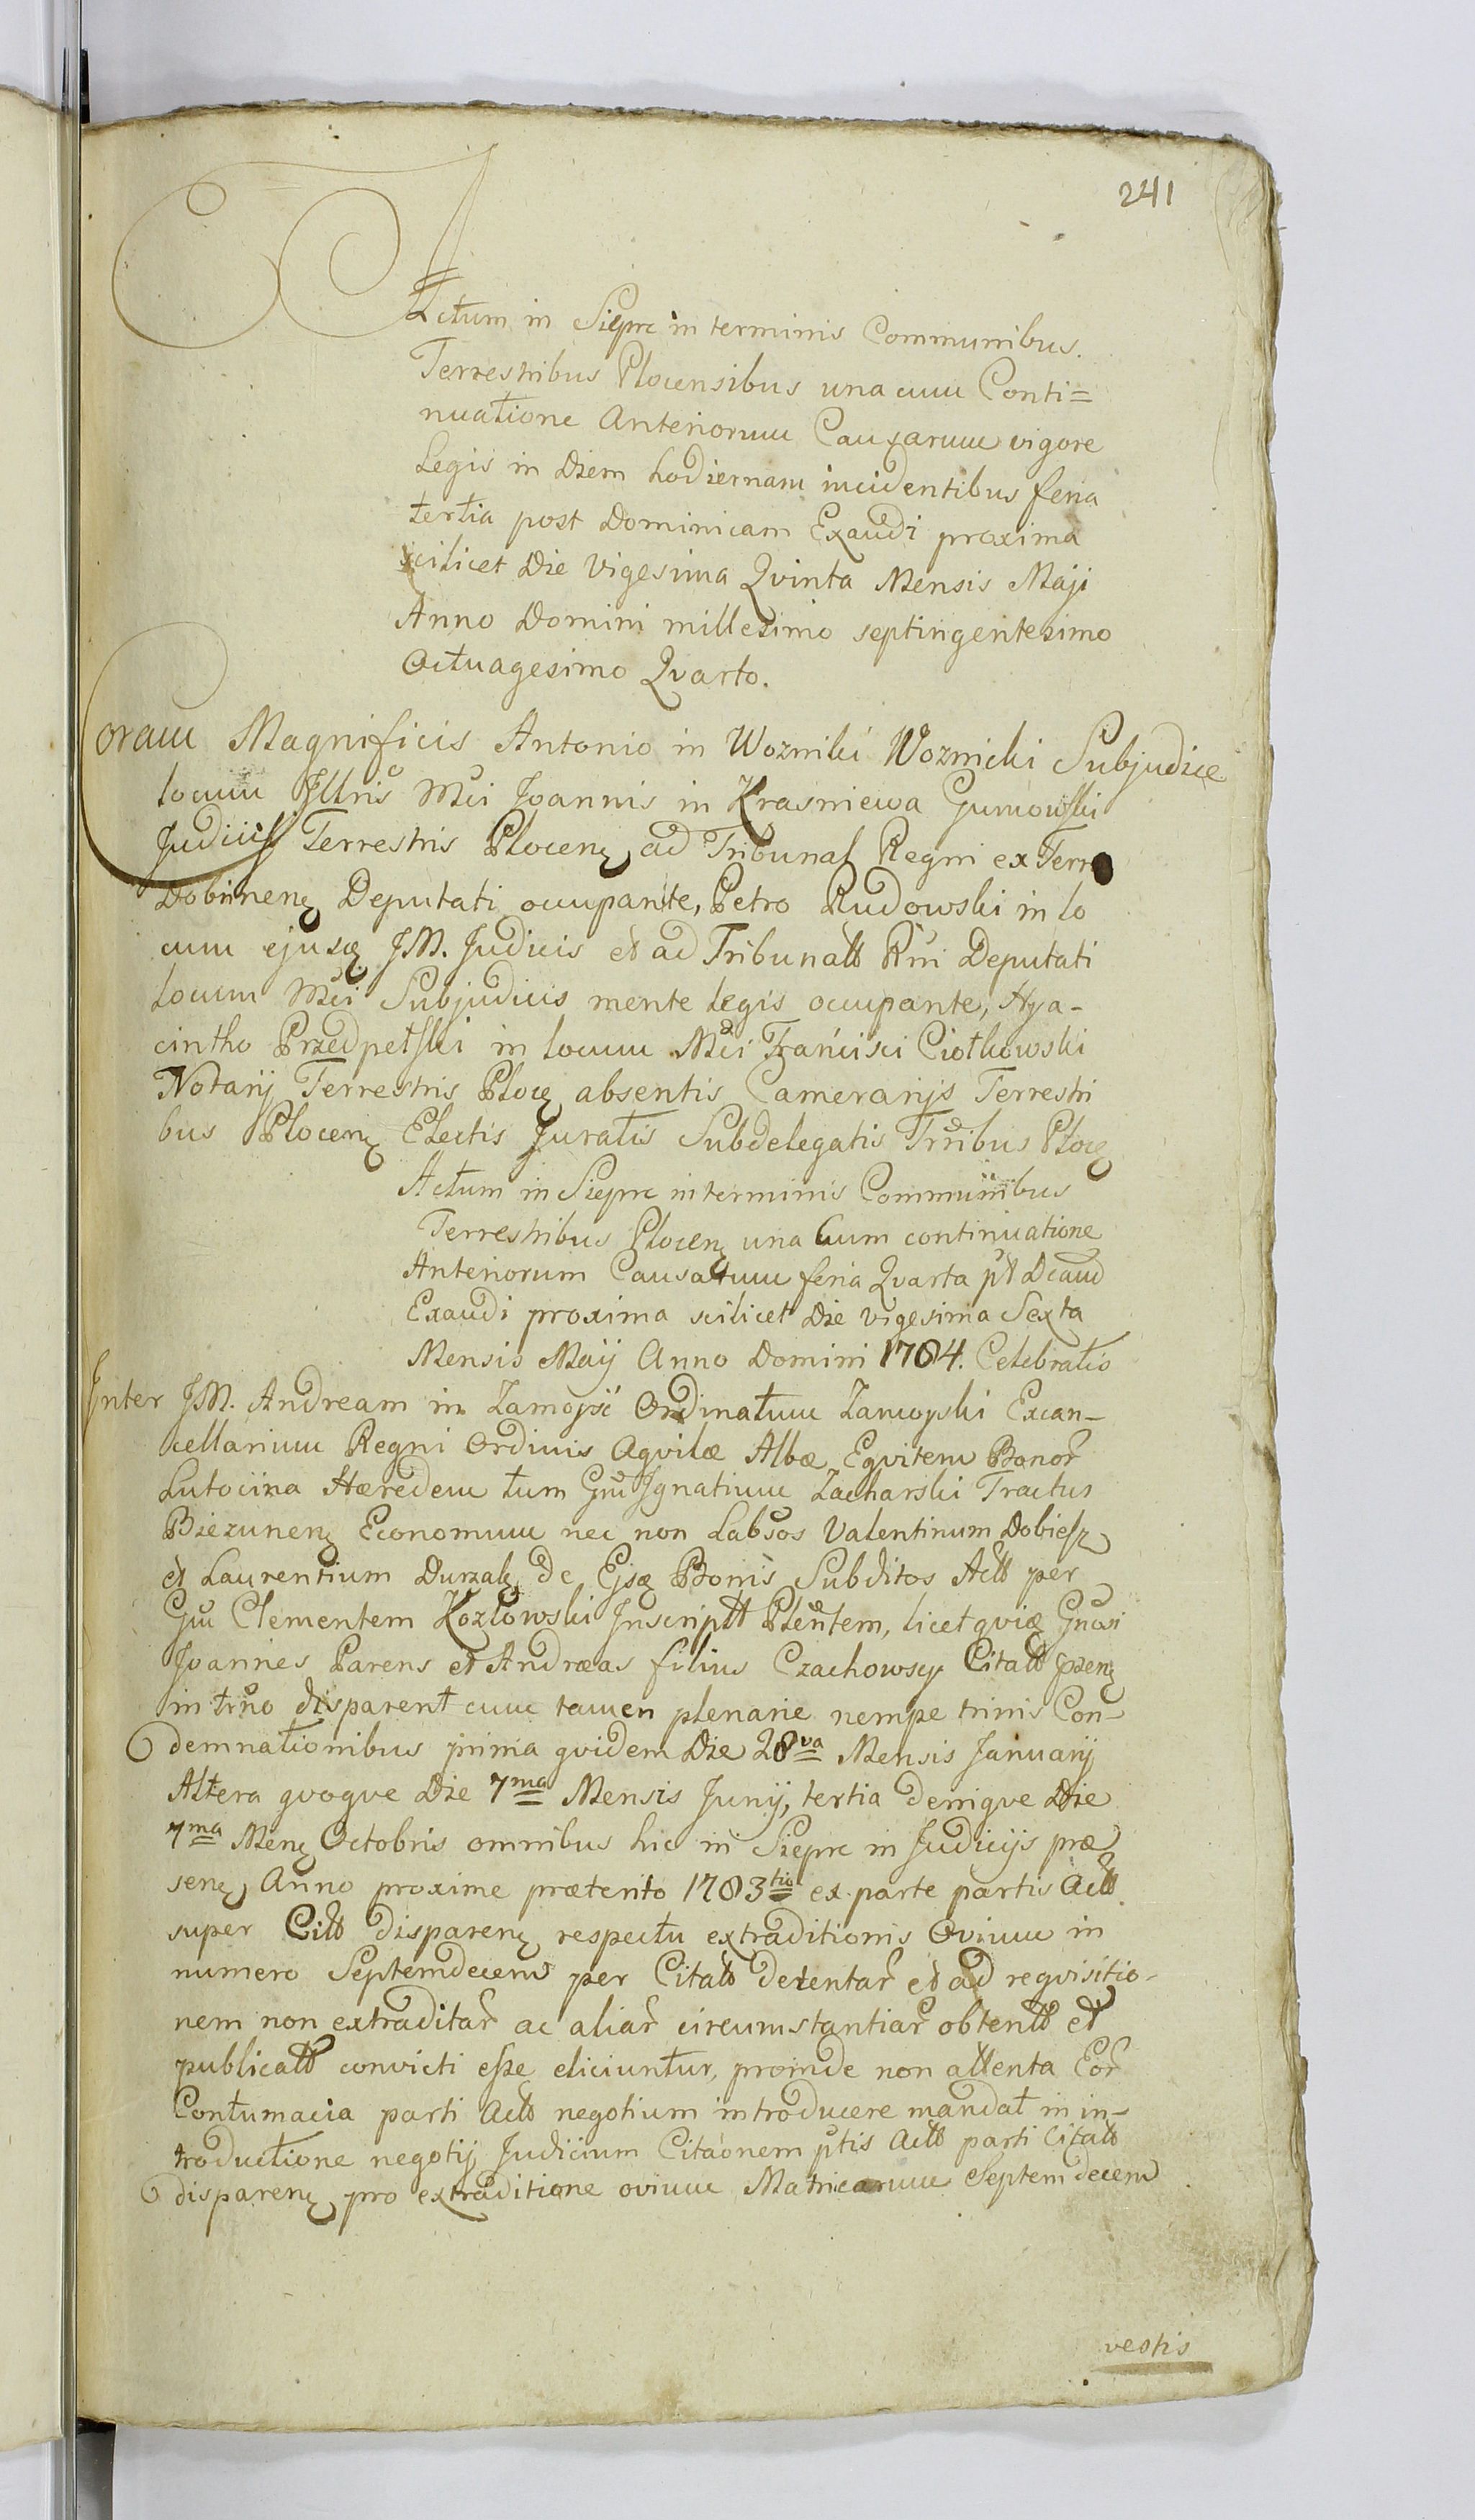 241
Actum in Siepre in terminis Communibus.
Terrestribus Plocensibus una cum Conti=
nuatione Anteriorum Causarum vigore
Legis in Diem hodiernam incidentibus feria
tertia post Dominicam Exaudi proxima
scilicet Die Vigesima Qvinta Mensis Maji
Anno Domini millesimo septingentesimo
Octuagesimo Qvarto.
Coram Magnificis Antonio in Wozniki Woznicki Subjudice
locum Illris Mci Joannis in Krasniewa Gumowski
Judicis Terrestris Plocenę ad Tribunal Regni ex Terra
Dobrinenę Deputati occupante, Petro Rudowski in lo
cum ejusę JM. Judicis et ad Tribunall Rni Deputati
locum Mci Subjudicis mente legis occupante, Hya-
cintho Przedpełski in locum Mci Francisci Ciołkowski
Notarij Terrestris Plocę absentis Camerarijs Terrestri
bus Plocenę Electis Juratis Subdelegatis Trribus Plocę
Actum in Siepre in terminis Communibus
Terrestribus Plocenę una Cum continuatione
Anteriorum Causarum feria Qvarta pt Dcam
Exaudi proxima scilicet Die vigesima Sexta
Mensis Maij Anno Domini 1784. Celebratis
Inter JM. Andream in Zamoyść Ordinatum Zamoyski Excan-
cellarium Regni Ordinis Aqvilæ Albæ Eqvitem Bonor
Lutocina Hæredem tum Gm Ignatium Zacharski Tractus
Biezunenę Economum nec non Labsos Valentinum Dobiesz
et Laurentium Durzalę de Ejsę Bonis Subditos Actt per
Gm Clementem Kozłowski Inscriptt Plentem, licet qvię Gnosi
Joannes Parens et Andræas filius Czachowscy Citatt przenę
in trno disparent cum tamen plenarie nempe trinis Con-
demnationibus prima qvidem Die 28va Mensis Januarij
Altera qvoqve Die 7ma Mensis Junij, tertia deniqve Die
7ma Menę Octobris omnibus hic in Siepre in Judicijs præ
senę Anno proxime præterito 1783tio ex parte partis Actt
super Citt disparenę respectu extraditionis Ovium in
numero Septemdecem per Citatt detentar et ad reqvisitio-
nem non extraditar ac aliar circumstantiar obtentt et
publicatt convicti esse eliciuntur, proinde non attenta Eor
Contumacia parti Actt negotium introducere mandat in in-
troductione negotij Judicium Citaonem ptis Actt parti Citatt
disparenę pro extraditione ovium Matricarum Septem decem
vestis